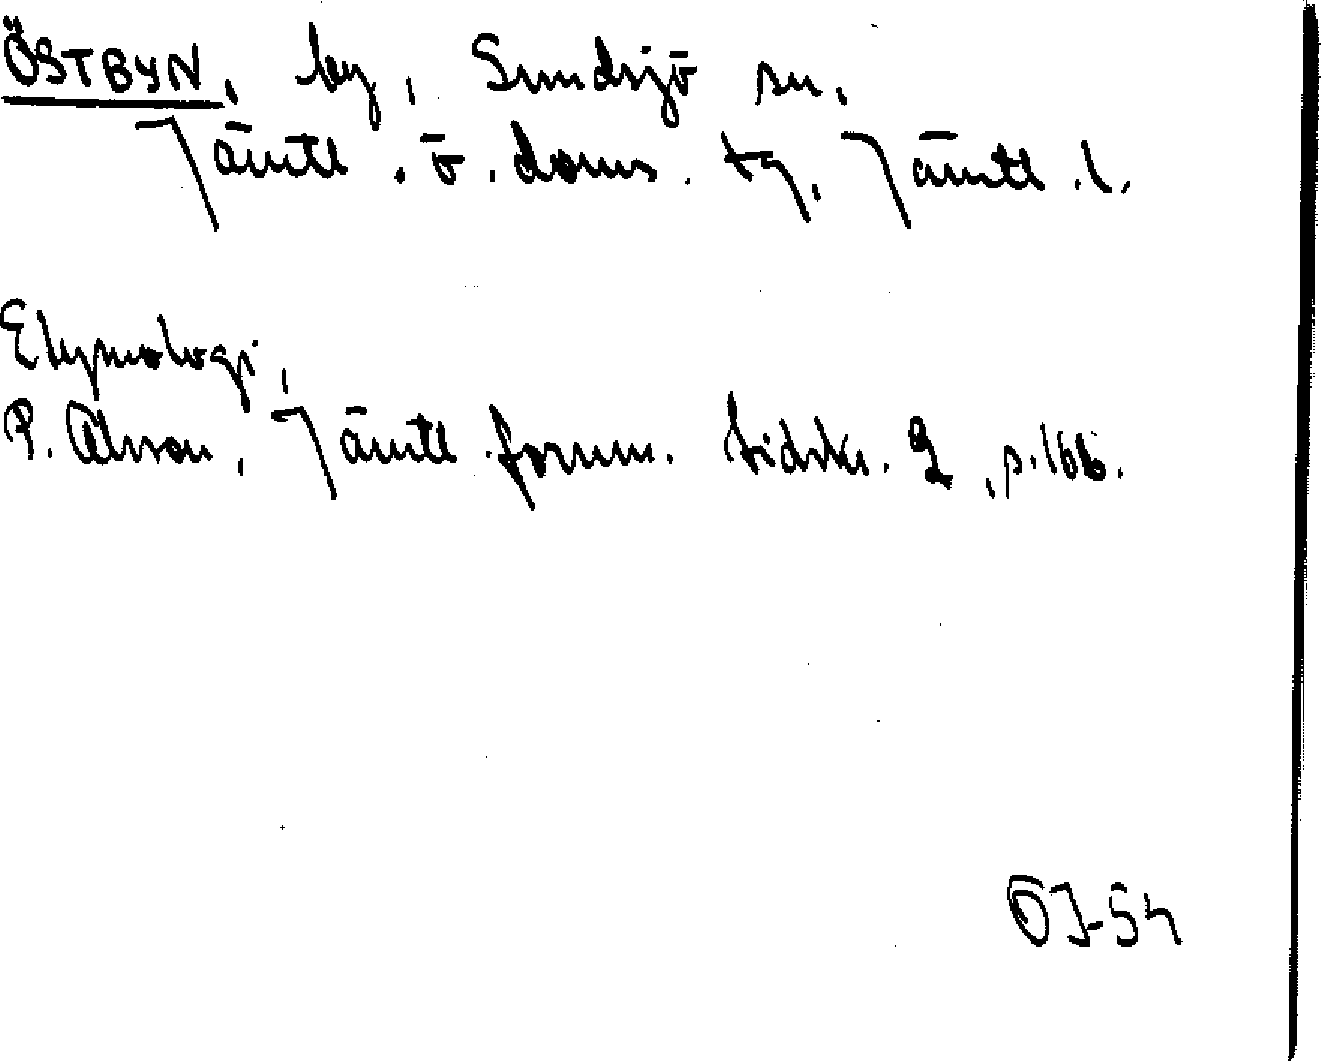 ÖSTBYN, by, Sundsjö sn,
Jämtl. ö. doms. tg, Jämtl. l.
Etymologi,
P. Olsson, Jämtl. fornm. tidskr. 2, p. 166.
ÖJ-54